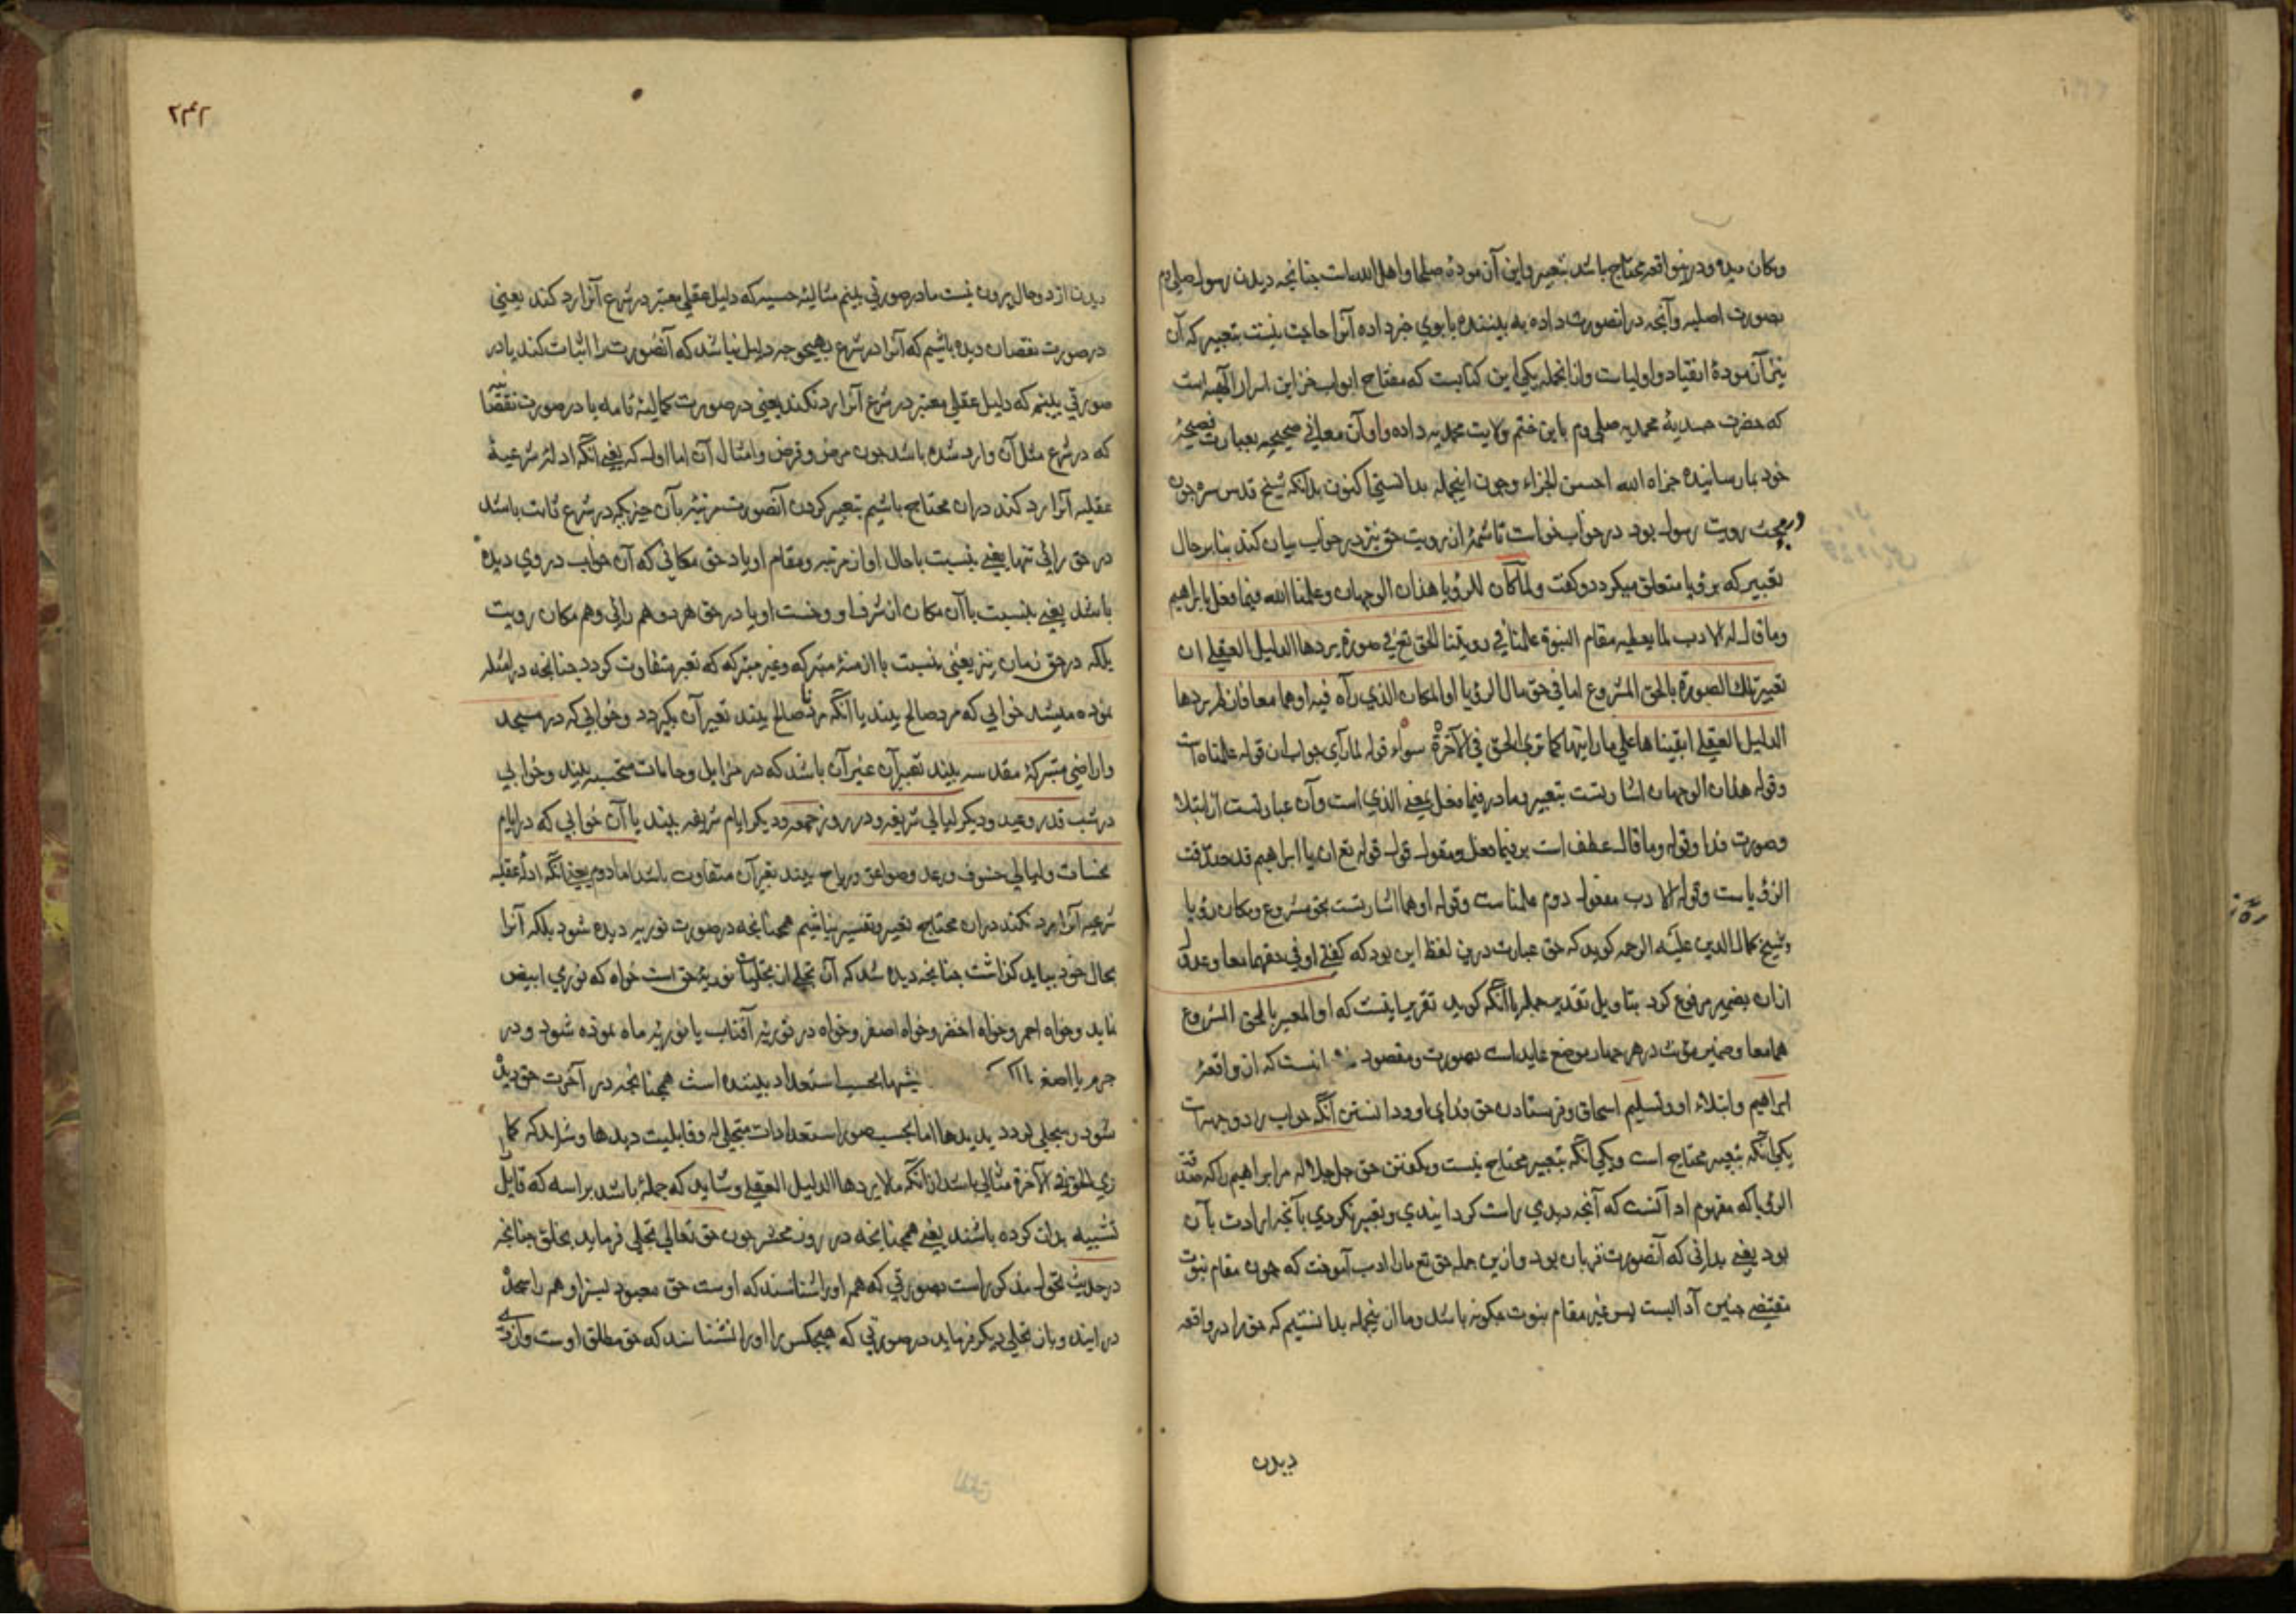 ومکان دیده ودرینواقعه محتاج باشد بتعبیر واین آن مودۀ صلحا واهل الله است چنانچه دیدن رسول صلی وم
بصورت اصلیه وآنچه درانصورت داده به بیننده یا بوی خبر داده آنرا حاجت نیست بتعبیر که آن
نیز آن مودۀ انقیاد واولیاست وازانجمله یکی این کتابست که مفتاح ابواب خزاین اسرار الهیه است
که حضرت صمدیۀ محمدیه صلی وم باین ختم ولایت محمدیه داده واو آن معانی صحیحه بعبارت فصیحۀ
خود بما رسانیده جزاه الله احسن الجزاء وچون اینجمله بدانستی اکنون بدانکه شیخ قدس سره چون
در بحث رویت رسول بود در خواب خواست تا شمۀ از رویت حق نیز در خواب بیان کند بنابر حال
تعبیر که برؤیا متعلق میکردد وکفت ولما کان للرؤیا هذان الوجهان وعلمنا الله فیما فعل بابراهیم
وما قال له الادب لما یعطیه مقام النبوة علمنا فی رویتنا الحق تع فی صورة یردها الدلیل العقلی ان
تعبیر تلک الصورة بالحق المشروع اما فی حق حال الرؤیا او المکان الذی رآه فیه اوهما معا فان لم یردها
الدلیل العقلی ابقیناها علی ما رایتها کما نری الحق فی الآخرة سواء قوله لما رآی جواب ان قوله علمناه است
وقوله هذان الوجهان اشارتست بتعبیر وما در فیما فعل یعنی الذی است وآن عبارتست از ابتلا
وصورت فدا وقوله وما قال عطف است بر فیما فعل ومقول قول قوله تع ان یا ابراهیم قد صدقت
الرؤیاست وقوله الادب مفعول دوم علمناست وقوله اوهما اشارتست بحق مشروع ومکان رؤیا
وشیخ کمال الدین علیه الرحمه کوید که حق عبارت درین لفظ این بود که کفتی او فی حقهما معا وعدول
ازان بضمیر مرفوع کرد بتاویل تقدیر جمله یا آنکه کوید تقریر اینست که او المعبر بالحق المشروع
هما معا وضمیر مؤنث در هر چهار موضع عایداست بصورت ومقصود انست که از واقعۀ
ابراهیم وابتلاء او وتسلیم اسحاق وفرستادن حق فدای او ودانستن آنکه خواب را دو جهت است
یکی آنکه بتعبیر محتاج است ویکی آنکه بتعبیر محتاج نیست وبکفتن حق جل جلاله مر ابراهیم را که صدقت
الرؤیا که مفهوم او آنست که آنچه دیدی راست کردانیدی وتعبیر نکردی بآنچه ارادت بآن
بود یعنی بدانی که آنصورت قربان بود وازین جمله حق تع مارا ادب آموخت که چون مقام نبوت
مقتضی چنین آدابست پس غیر مقام نبوت چکونه باشد وما ازینجمله بدانستیم که حق را در واقعه
دیدن
۲۴۲
دیدن از دو حال بیرون نیست ما در صورتی بینیم مثالیۀ حسیه که دلیل عقلی معتبر در شرع آنرا رد کند یعنی
در صورت نقصان دیده باشیم که آنرا در شرع بهیچوجه دلیل نباشد که آنصورت را اثبات کند یا در
صورتی بینیم که دلیل عقلی معتبر در شرع آنرا رد نکند یعنی در صورت کمالیۀ تامه یا در صورت نقصا
که در شرع مثل آن وارد شده باشد چون مرض وقرض وامثال آن اما اول که یعنی آنکه ادلۀ شرعیۀ
عقلیه آنرا رد کند دران محتاج باشیم بتعبیر کردن آنصورت مرئیه بآن چیزیکه در شرع ثابت باشد
در حق رائی تنها یعنی بنسبت با حال او از مرتبه ومقام او یا در حق مکانی که آن خواب در وی دیده
باشد یعنی بنسبت با آن مکان از شرف او وخست او یا در حق هر دو هم رائی وهم مکان رویت
بلکه در حق زمان نیز یعنی بنسبت با ازمنۀ متبرکه وغیر متبرکه که تعبیر متفاوت کردد چنانچه در امثله
نموده میشد خوابی که مرد صالح بیند یا آنکه مرد ناصالح بیند تعبیر آن بکردد وخوابی که در مسجد
واراضی متبرکۀ مقدسه بیند تعبیر آن غیر آن باشد که در مزابل وحمامات متنجسه بیند وخوابی
در شب قدر وعید ودیکر لیالی شریفه ودر روز جمعه ودیکر ایام شریفه بیند با آن خوابی که در ایام
نحسات ولیالی خسوف ورعد وصواعق وریاح بیند تعبیر آن متفاوت باشد اما دوم یعنی آنکه ادلۀ عقلیه
شرعیه آنرا رد نکند دران محتاج تعبیر وتفسیر نباشیم همچنانچه در صورت نوریه دیده شود بلکه آنرا
بحال خود بباید کذاشت چنانچه دیده شد که آن تجلی از تجلیات نوریۀ حق است خواه که نوری ابیض
نماید وخواه احمر وخواه اخضر وخواه اصفر وخواه در نوریۀ آفتاب یا نوریۀ ماه نموده شود ودر
جرم یا اصغر یا اکبر بحسب استعداد بیننده است همچنانچه در آخرت حق دیده
شود ومتجلی کردد بدیدها اما بحسب صور استعدادات متجلی له وقابلیت دیدها وشاید که کما
نری الحق فی الآخرة مثالی باشد ازانکه ما لا یردها الدلیل العقلی وشاید که جملۀ باشد براسه که قایل
تشبیه بدان کرده باشند یعنی همچنانچه در روز محشر چون حق تعالی تجلی فرماید بخلق چنانچه
در حدیث تحول مذکوراست بصورتی که همه اورا شناسند که اوست حق معبود بسزا وهمه را سجده
در آیند وباز تجلی دیکر فرماید در صورتی که هیچکس را اورا نشناسند که حق مطلق اوست وازوی